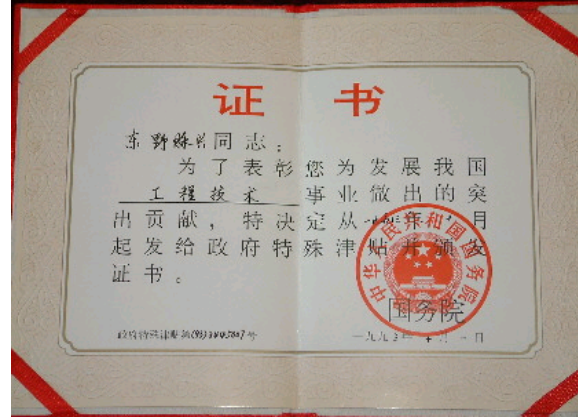 证书
东野 同志：
为了表彰您为发展我国
工程技术 事业做出的突
出贡献，特决定从 年 月
起发给政府特殊津贴并颁发
证书。
中华人民共和国国务院
国务院
政府特殊津贴第 号
一九九 年十月一日